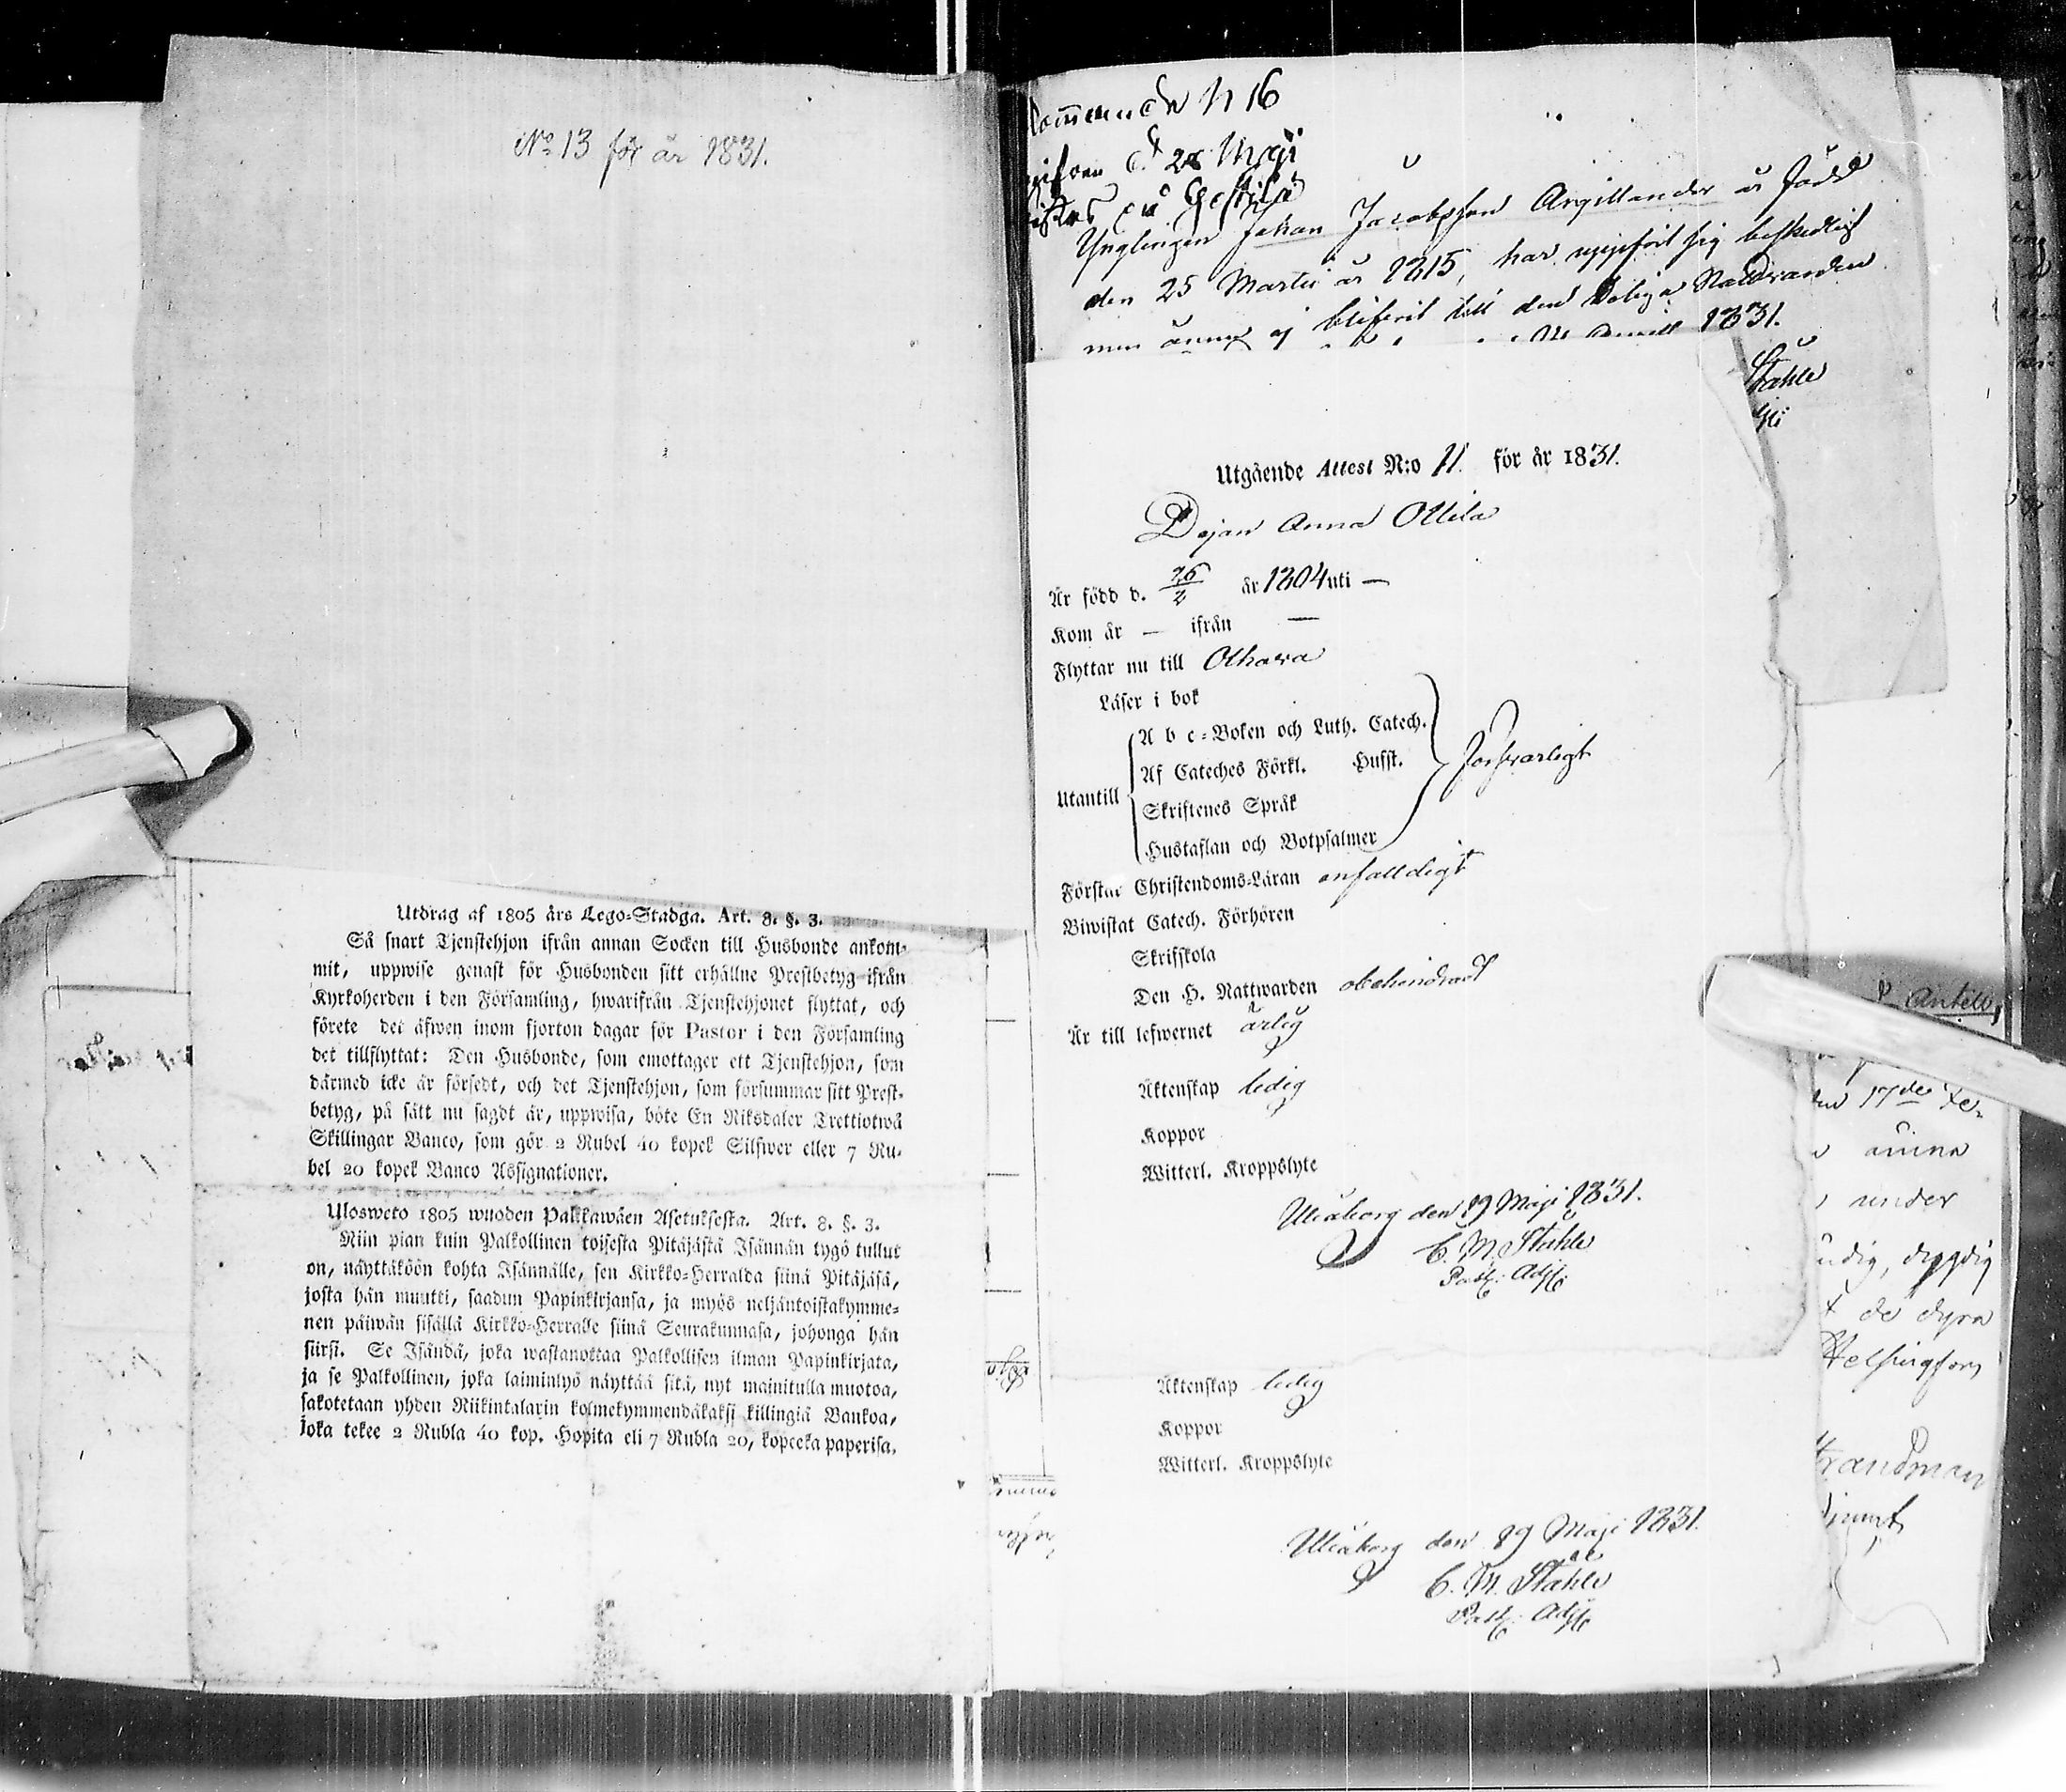 No 13 för år 1831.
Utdrag af 1805 års Lego-Stadga. Art. 8. §. 3.
Så snart Tjenstehjon ifrån annan Socken till Husbonde ankom-
mit, uppwise genast för Husbonden sitt erhållne Prestbetyg ifrån
Kyrkoherden i den Församling, hwarifrån Tjenstehjonet flyttat, och
förete det äfwen inom fjorton dagar för Pastor i den Församling
det tillflyttat: Den Husbonde, som emottager ett Tjenstehjon, som
därmed icke är försedt, och det Tjenstehjon, som försummar sitt Prest-
betyg, på sätt nu sagdt är, uppwisa, böte En Riksdaler Trettiotwå
Skillingar Banco, som gör 2 Rubel 40 kopek Silfwer eller 7 Ru-
bel 20 kopek Banco Assignationer.
Ulosweto 1805 wuoden Palkkawäen Asetuksesta. Art. 8. §. 3.
Niin pian kuin Palkollinen toisesta Pitäjästä Isännän tygö tullut
on, näyttäköön kohta Isännälle, sen Kirkko-Herralda siinä Pitäjäsä,
josta hän muutti, saadun Papinkirjansa, ja myös neljäntoistakymme-
nen päiwän sisällä Kirkko-Herralle siinä Seurakunnasa, johonga hän
siirsi. Se Isändä, joka wastanottaa Palkollisen ilman Papinkirjata,
ja se Palkollinen, joka laiminlyö näyttää sitä, nyt mainitulla muotoa,
sakotetaan yhden Riikintalarin kolmekymmendäkaksi killingiä Bankoa,
joka tekee 2 Rubla 40 kop. Hopita eli 7 Rubla 20, kopecka paperisa.
N 16
Maji
Ynglingen Johan Jacobsson Argillander är född
den 25 Martii år 1815, har uppfört sig beskedligt
men ännu ej blifvit till den Heliga Nattvarden
1831.
Ståhle
Utgående Attest N:o 11. för år 1831.
Pojan Anna Ollila
Är född d. 26/2 år 1804 uti —
Kom år — ifrån —
Flyttar nu till Olhava
Läser i bok
A b c-Boken och Luth. Catech.
Af Cateches Förkl. Husst.
Utantill
Skriftenes Språk
Hustaflan och Botpsalmer
försvarligt
Förstår Christendoms-Läran enfalldigt
Biwistat Catech. Förhören
Skrifskola
Den H. Nattwarden obehindradt
Är till lefwernet ärlig
Äktenskap ledig
Koppor
Witterl. Kroppslyte
Uleåborg den 19 Maji 1831.
C. M. Ståhle
Past: Adj:
Äktenskap ledig
Koppor
Witterl. Kroppslyte
Uleåborg den 19 Maji 1831.
C. M. Ståhle
Past: Adj:
Antell
17de Fe-
under
dygdig
de dyra
Helsingfors